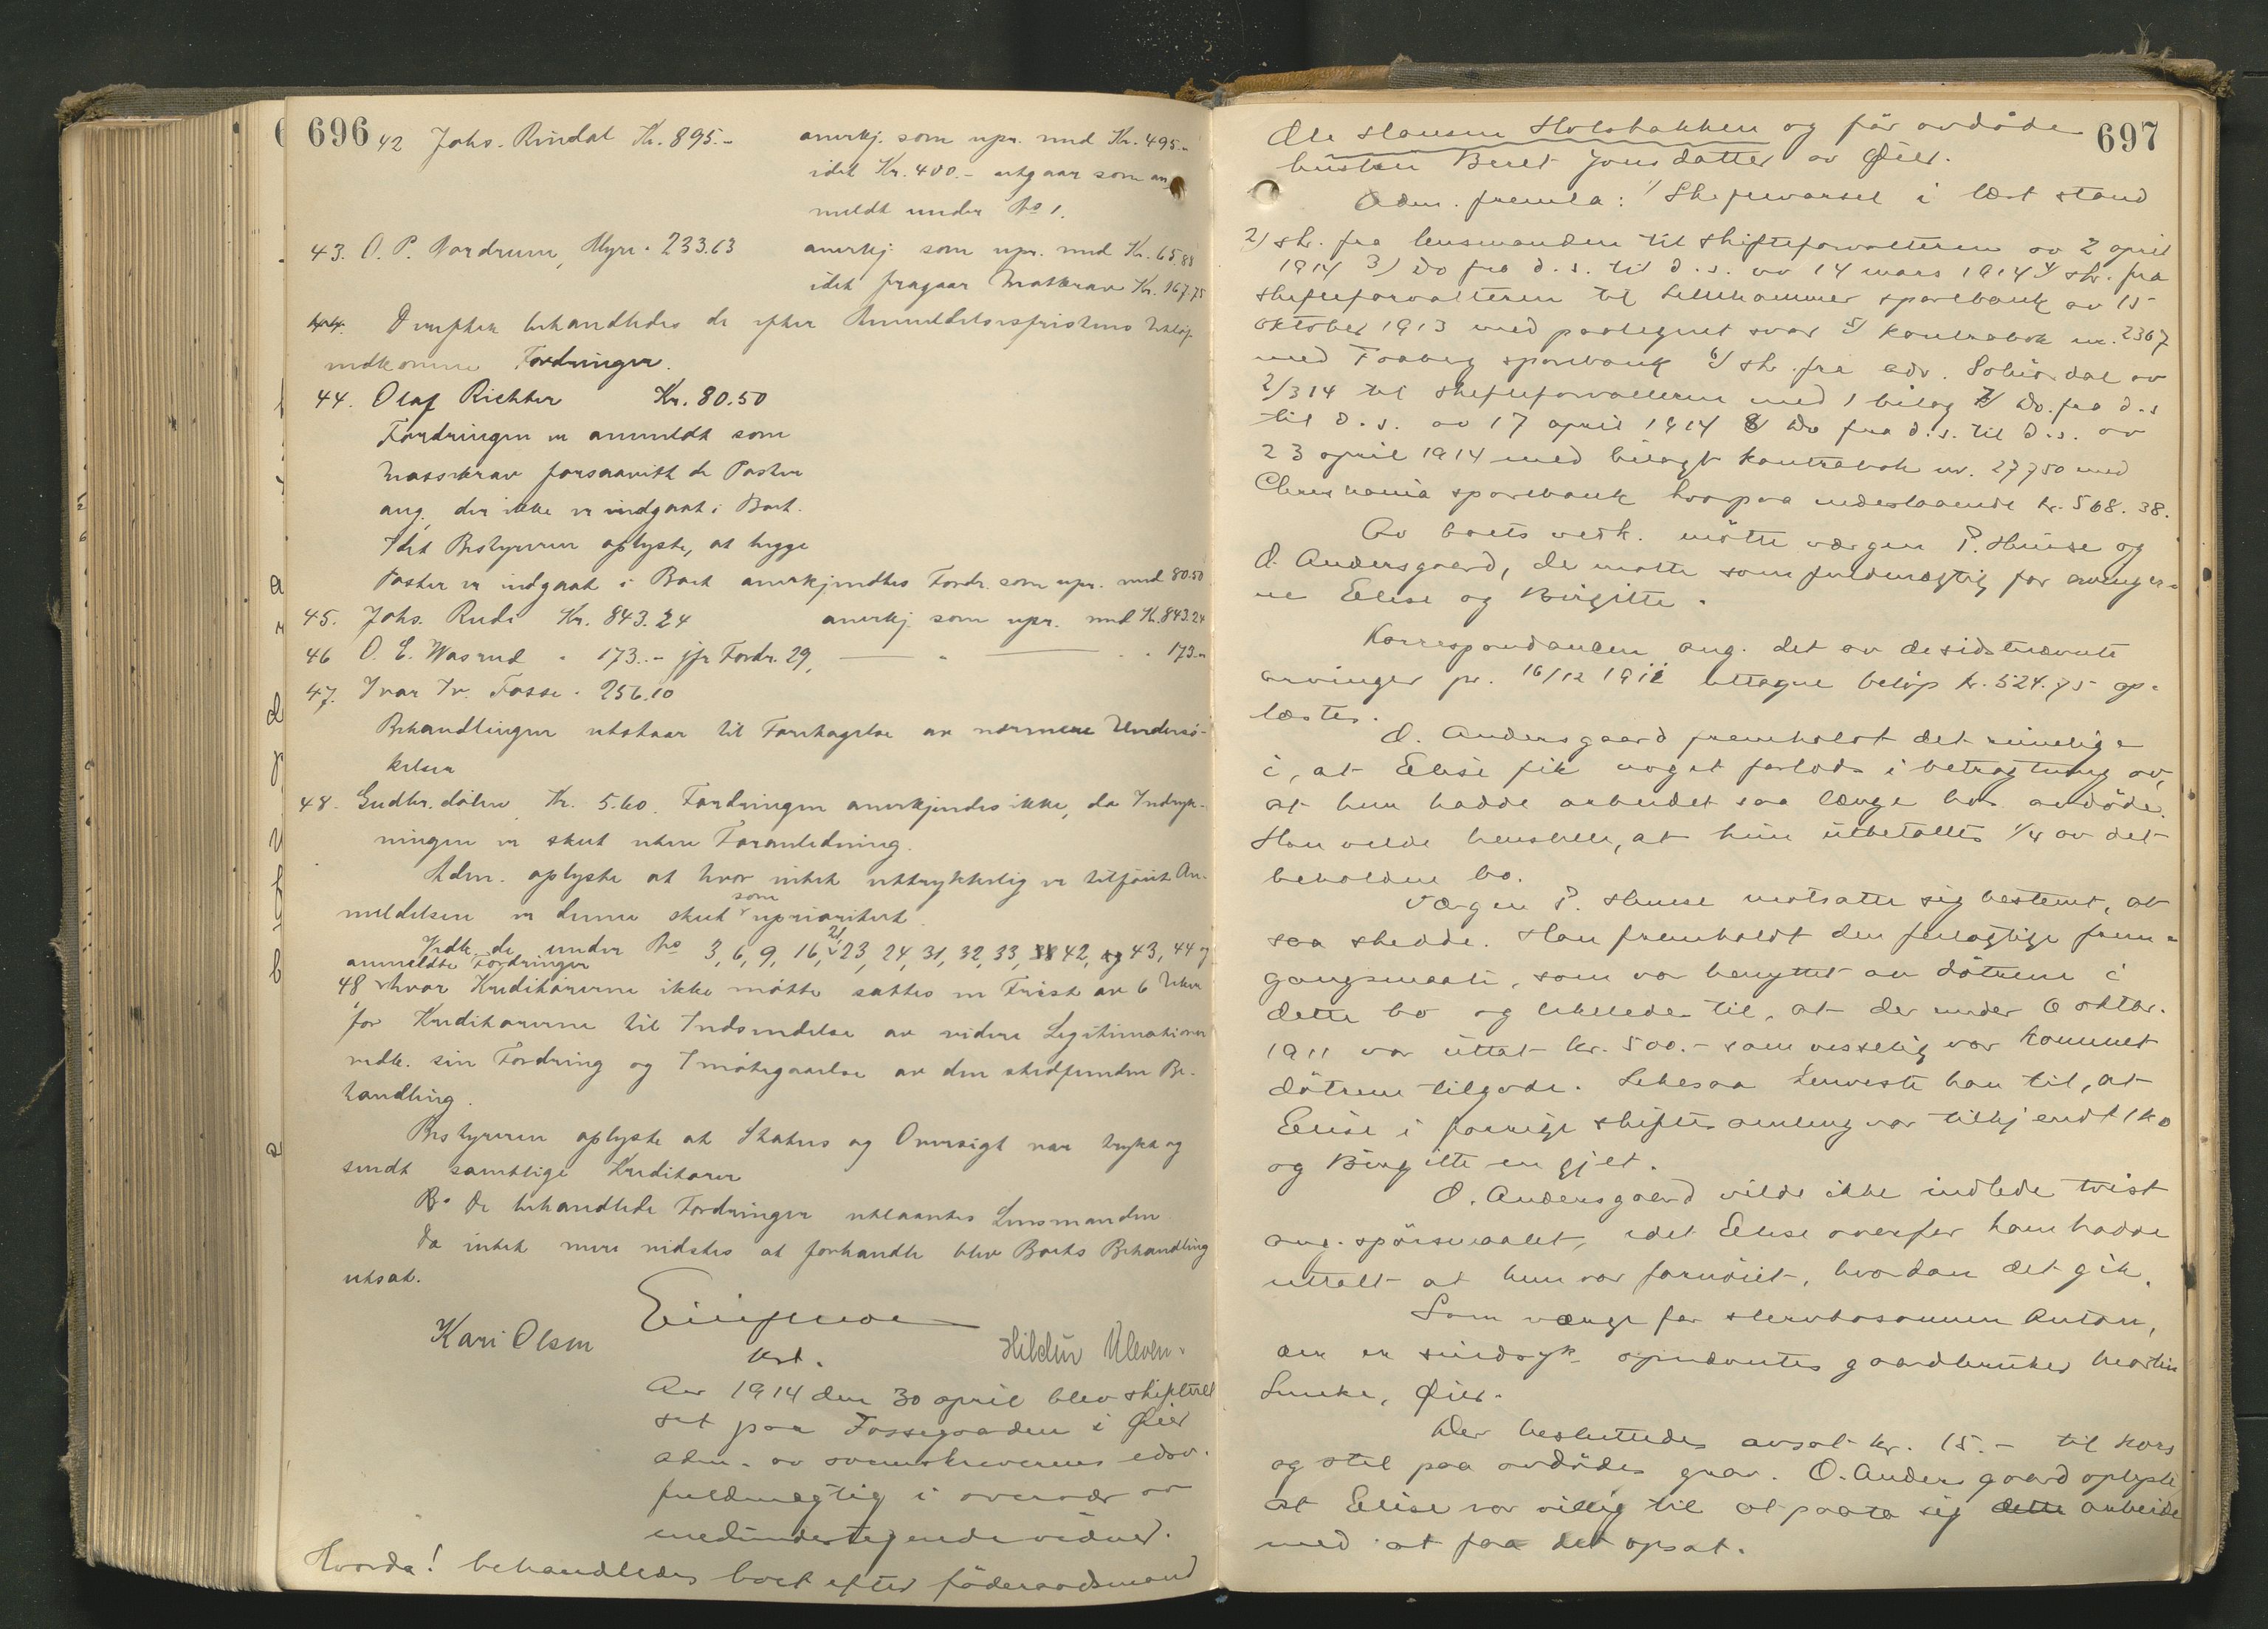 696
42 Johs. Rindal Kr. 895.- anerkj. som upr. med Kr. 495.-
idet Kr. 400.- utgaar som an-
meldt under No 1.
43. O. P. Nordrum, Myre. 233.63 anerkj som upr. med Kr. 65.88
idet fragaar Massekrav Kr. 167.75
44. Derefter behandledes de efter Anmeldelsesfristens Utløp
indkomne Fordringer.
44. Olaf Richter Kr. 80.50
Fordringen er anmeldt som
Massekrav forsaavidt de Poster
ang. der ikke er indgaat i Boet.
Idet Bestyreren oplyste, at begge
Poster er indgaat i Boet anerkjendtes Fordr. som upr. med 80.50
45. Johs. Rude Kr. 843.24 anerkj som upr. med Kr. 843.24
46 O. E. Wasrud " 173.- jfr Fordr. 29, " " 173.-
47. Ivar Iv. Fosse " 256.10
Behandlingen utstaar til Foretagelse av nærmere Undersø-
kelser
48. Gudbr.dølen Kr. 5.60. Fordringen anerkjendes ikke, da Indryk-
ningen er skeet uten Foranledning.
Adm. oplyste at hvor intet uttrykkelig er tilføiet An-
meldelsen er denne skeet som uprioritert
Vedk. de under No 3, 6, 9, 16, 21, 23, 24, 31, 32, 33, 42, 43, 44 og
48 anmeldte Fordringer hvor Kreditorerne ikke møtte sattes en Frist av 6 Uker
for Kreditorerne til Indsendelse av videre Legitimationer
vedk. sin Fordring og Imøtegaaelse av den stedfundne Be-
handling.
Bestyreren oplyste at Status og Oversigt var trykt og
sendt samtlige Kreditorer
De behandlede Fordringer utlaantes Lensmanden
Da intet mere vidstes at forhandle blev Boets Behandling
utsat.
Kari Olsen
kst.
Hildur Uleven.
Aar 1914 den 30 april blev skifteret
sat paa Fossegaarden i Øier
adm. av sorenskriverens edsv.
fuldmægtig i overvær av
medundertegnende vidner.
Hvorda! behandledes boet efter føderaadsmand
697
Ole Hansen Holsbakken og før avdøde
hustru Beret Jonsdatter av Øier.
Adm. fremla: 1/ Skiftevarsel i læst stand
2) skr. fra lensmanden til skifteforvalteren av 2 april
1914 3) Do fra d. s. til d. s. av 14 mars 1914 4/ skr. fra
skifteforvalteren til Lillehammer sparebank av 15
oktober 1913 med paategnet svar 5/ kontrabok nr. 2367
med Faaberg sparebank 6/ skr. fra adv. Solværdal av
2/3 14 til skifteforvalteren med 1 bilag 7/ Do. fra d. s
til d. s. av 17 april 1914 8/ Do fra d. s. til d. s. av
23 april 1914 med bilagt kontrabok nr. 27750 med
Christiania sparebank hvorpaa indestaaende kr. 568.38.
Av boets vedk. møtte værgen P. Hunse og
O. Andersgaard, de møtte som fuldmægtig for arvinger-
ne Elise og Birgitte.
Korrespondancen ang. det av de sidstnævnte
arvinger pr. 16/12 1911 uttagne beløp kr. 524.75 op-
læstes.
O. Andersgaard fremholdt det rimelige
i, at Elise fik noget forlods i betragtning av,
at hun hadde arbeidet saa længe hos avdøde.
Han vilde henstille, at hun utbetaltes 1/4 av det
beholdne bo.
Værgen P. Hunse motsatte sig bestemt, at
saa skedde. Han fremholdt den feilagtige frem-
gangsmaate, som var benyttet av døtrene i
dette bo og likeledes til, at der under 6 oktbr.
1911 var uttat kr. 500.- som visselig var kommet
døtrene tilgode. Likesaa henviste han til, at
Elise i forrige skiftesamling var tilkjendt 1 ko
og Birgitte en gjet.
O. Andersgaard vilde ikke indlede tvist
ang. spørsmaalet, idet Elise overfor ham hadde
uttalt at hun var fornøiet, hvordan det gik.
Som værge for stervbosønnen Anton,
der er sindssyk opnævntes gaardbruker Martin
Lunke, Øier.
Der besluttedes avsat kr. 15.- til kors
og stel paa avdødes grav. O. Andersgaard oplyste
at Elise var villig til at paata sig dette arbeide
med at faa det opsat.